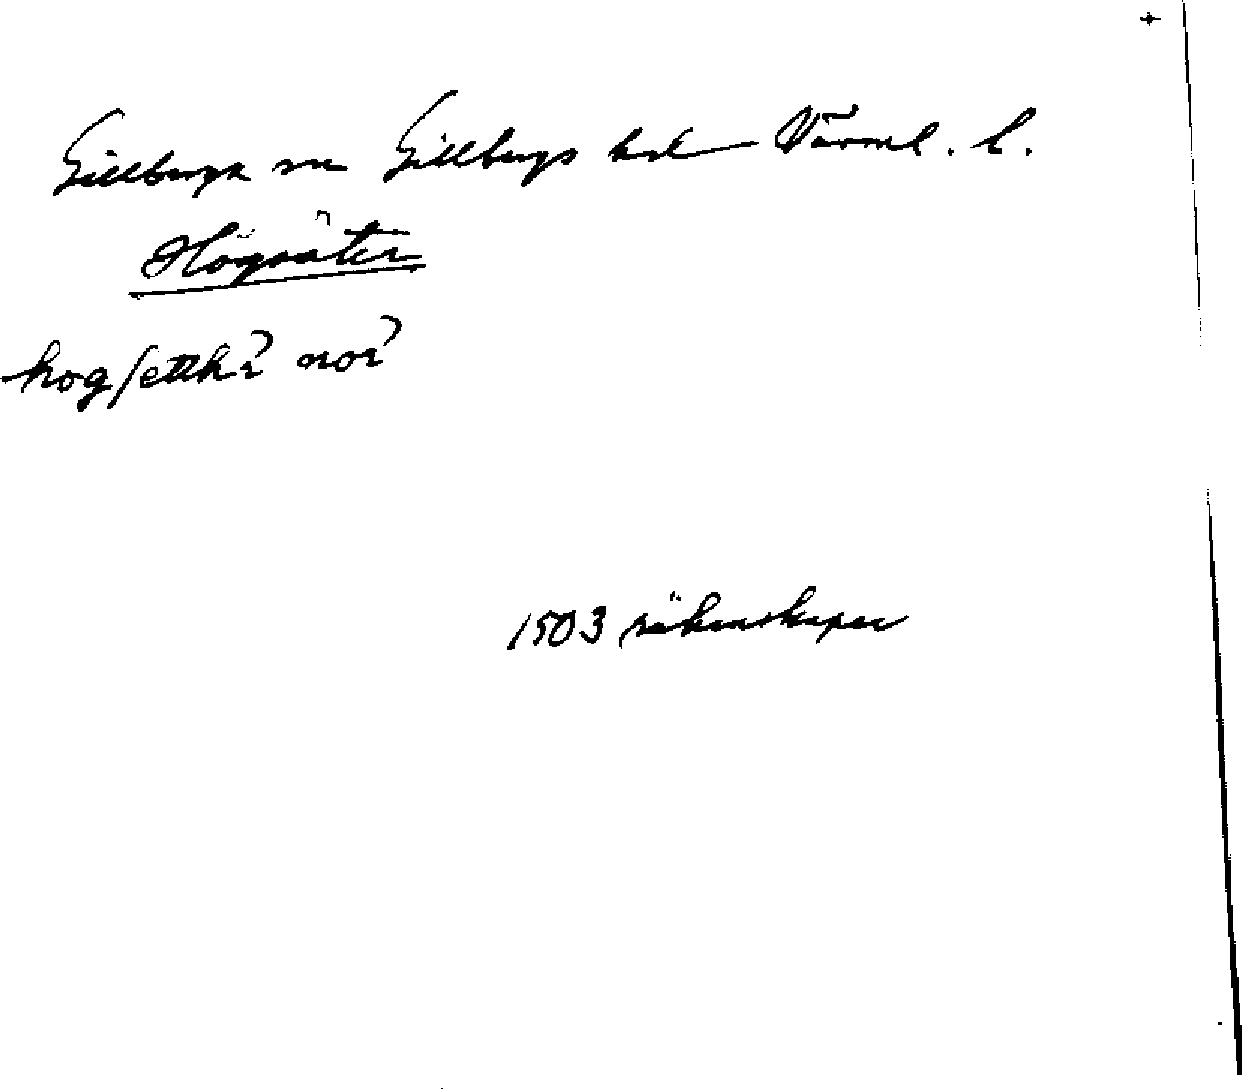 Gillberga sn Gillbergs hd Värml. l.
Högsäter
hogſetthr nor
1503 räkenskaper